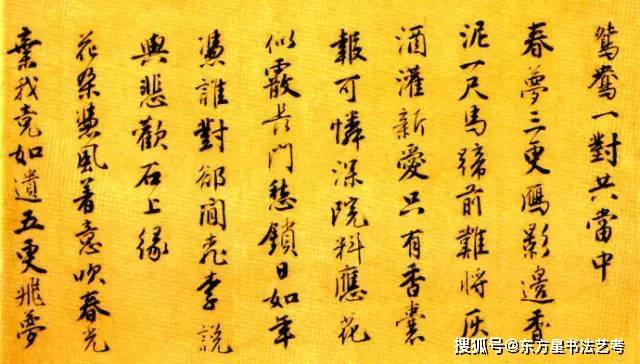 鴛鴦一對共當中
春夢三更鴈影邊香
泥一尺馬蹄前難將灰
酒灌新愛只有香囊
報可憐深院料應花
似霰長門愁鎖日如年
憑誰對卻閒桃李說
與悲歡石上緣
花朵憑風着意吹春光
棄我竟如遺五更飛夢
搜狐号@东方星书法艺考